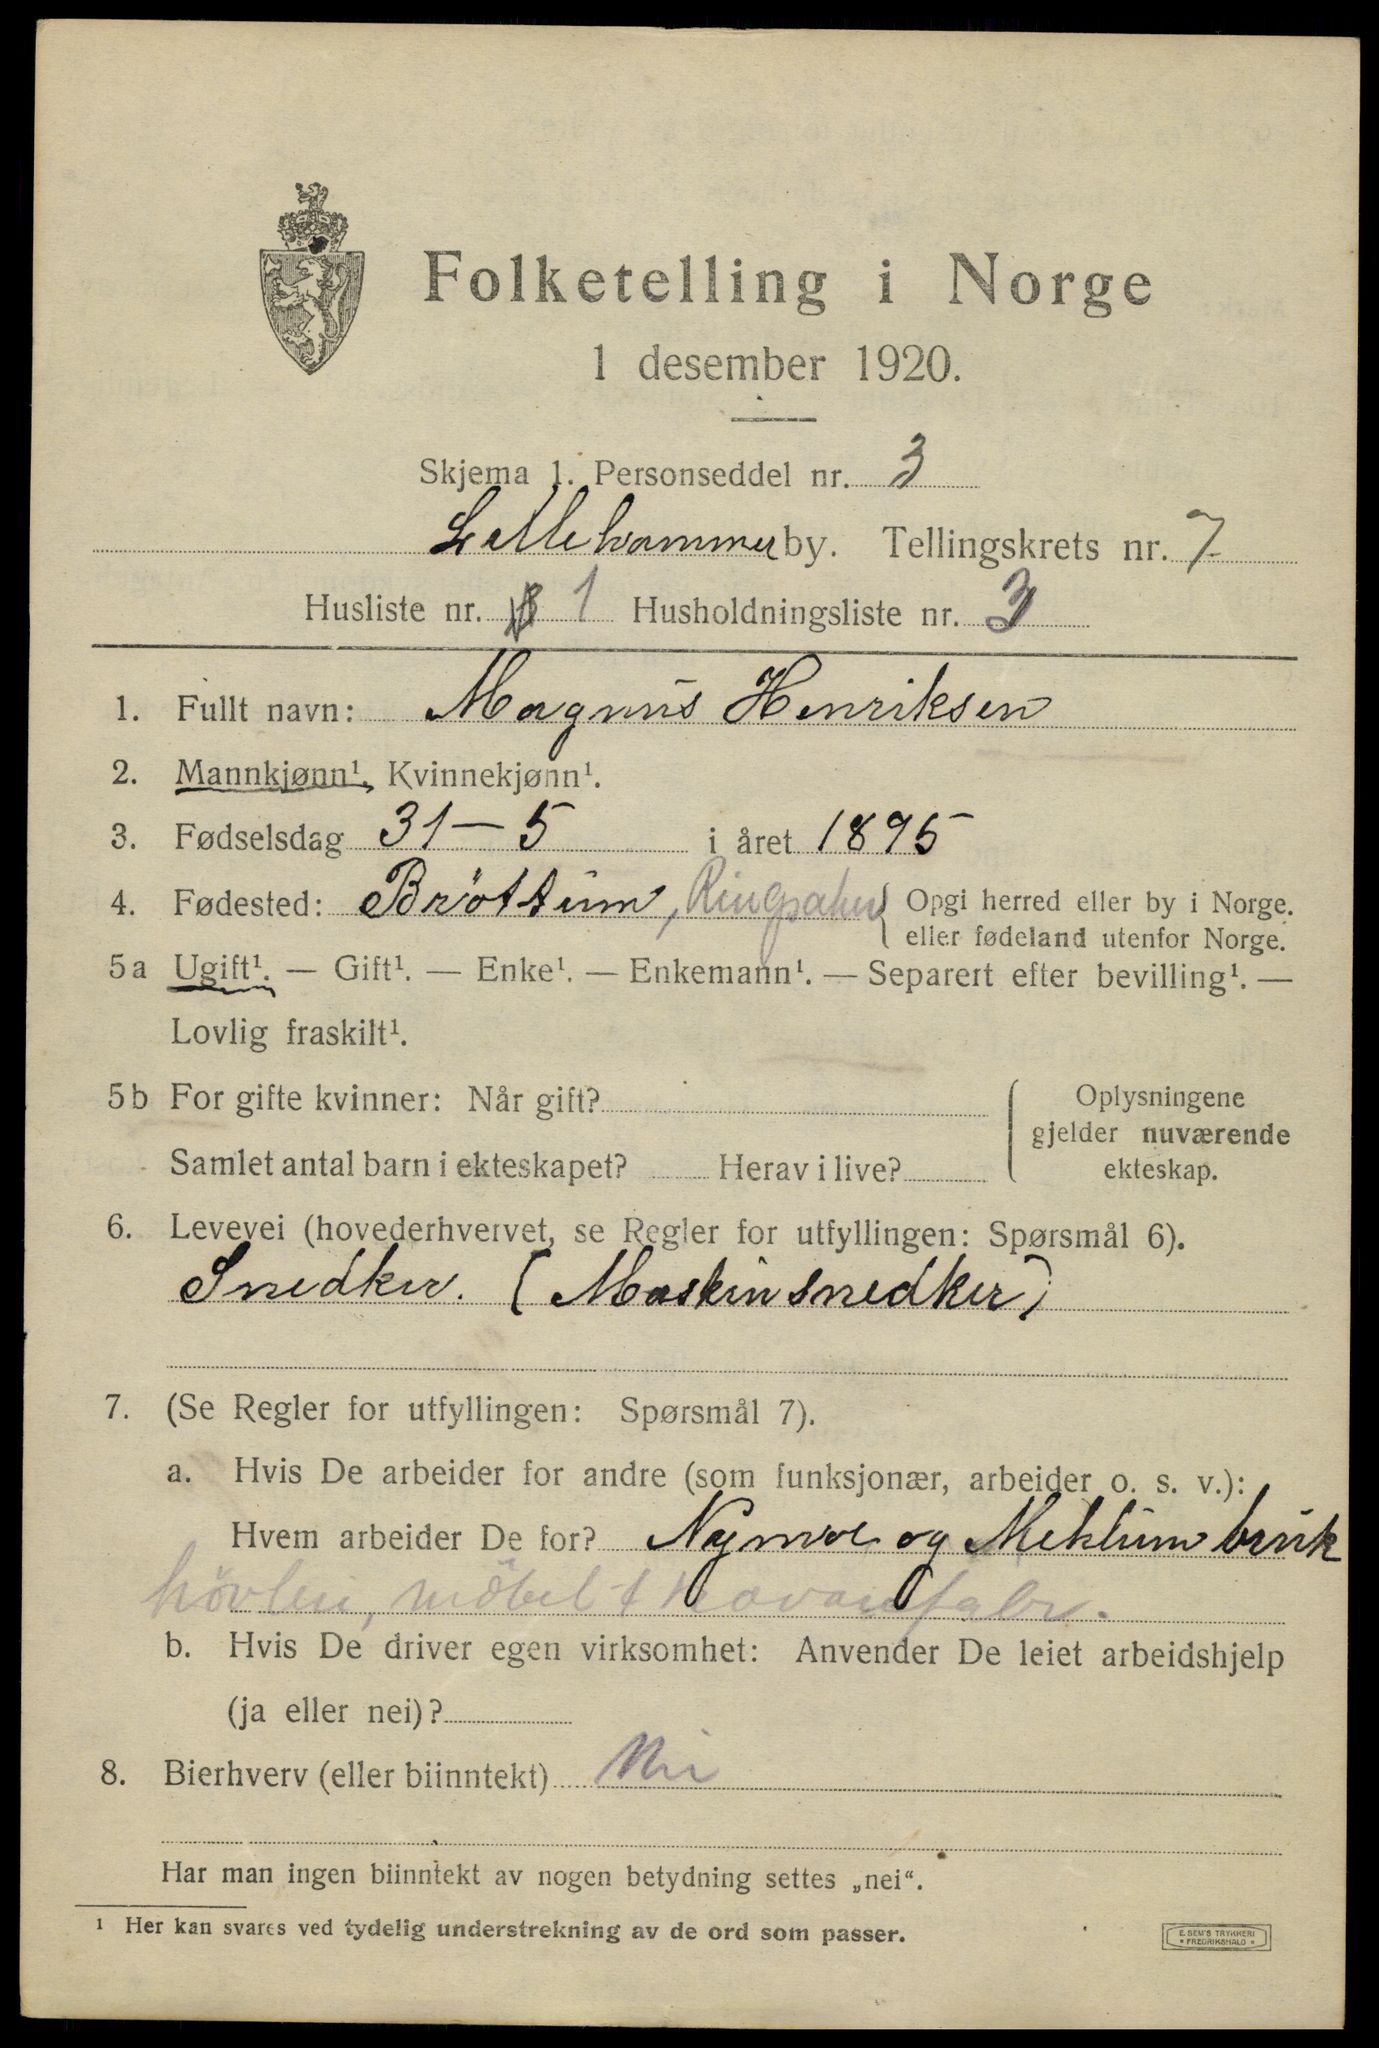 Folketelling i Norge
1 desember 1920.
Skjema 1. Personseddel nr. 3
Lillehammer by. Tellingskrets nr. 7
Husliste nr. 1 Husholdningsliste nr. 3
1. Fullt navn: Magnus Henriksen
2. Mannkjønn¹. Kvinnekjønn¹.
3. Fødselsdag 31-5 i året 1895
4. Fødested: Brøttum, Ringsaker Opgi herred eller by i Norge.
eller fødeland utenfor Norge.
5a Ugift¹. — Gift¹. — Enke¹. — Enkemann¹. — Separert efter bevilling¹. —
Lovlig fraskilt¹.
5b For gifte kvinner: Når gift? Oplysningene
gjelder nuværende
Samlet antal barn i ekteskapet? Herav i live? ekteskap.
6. Levevei (hovederhvervet, se Regler for utfyllingen: Spørsmål 6).
Snedker. (Maskinsnedker)
7. (Se Regler for utfyllingen: Spørsmål 7).
a. Hvis De arbeider for andre (som funksjonær, arbeider o. s. v.):
Hvem arbeider De for? og Meklum bruk
høvleri, møbel
b. Hvis De driver egen virksomhet: Anvender De leiet arbeidshjelp
(ja eller nei)?
8. Bierhverv (eller biinntekt) Nei
Har man ingen biinntekt av nogen betydning settes „nei“.
¹ Her kan svares ved tydelig understrekning av de ord som passer.
E. SEM'S TRYKKERI
• FREDRIKSHALD •